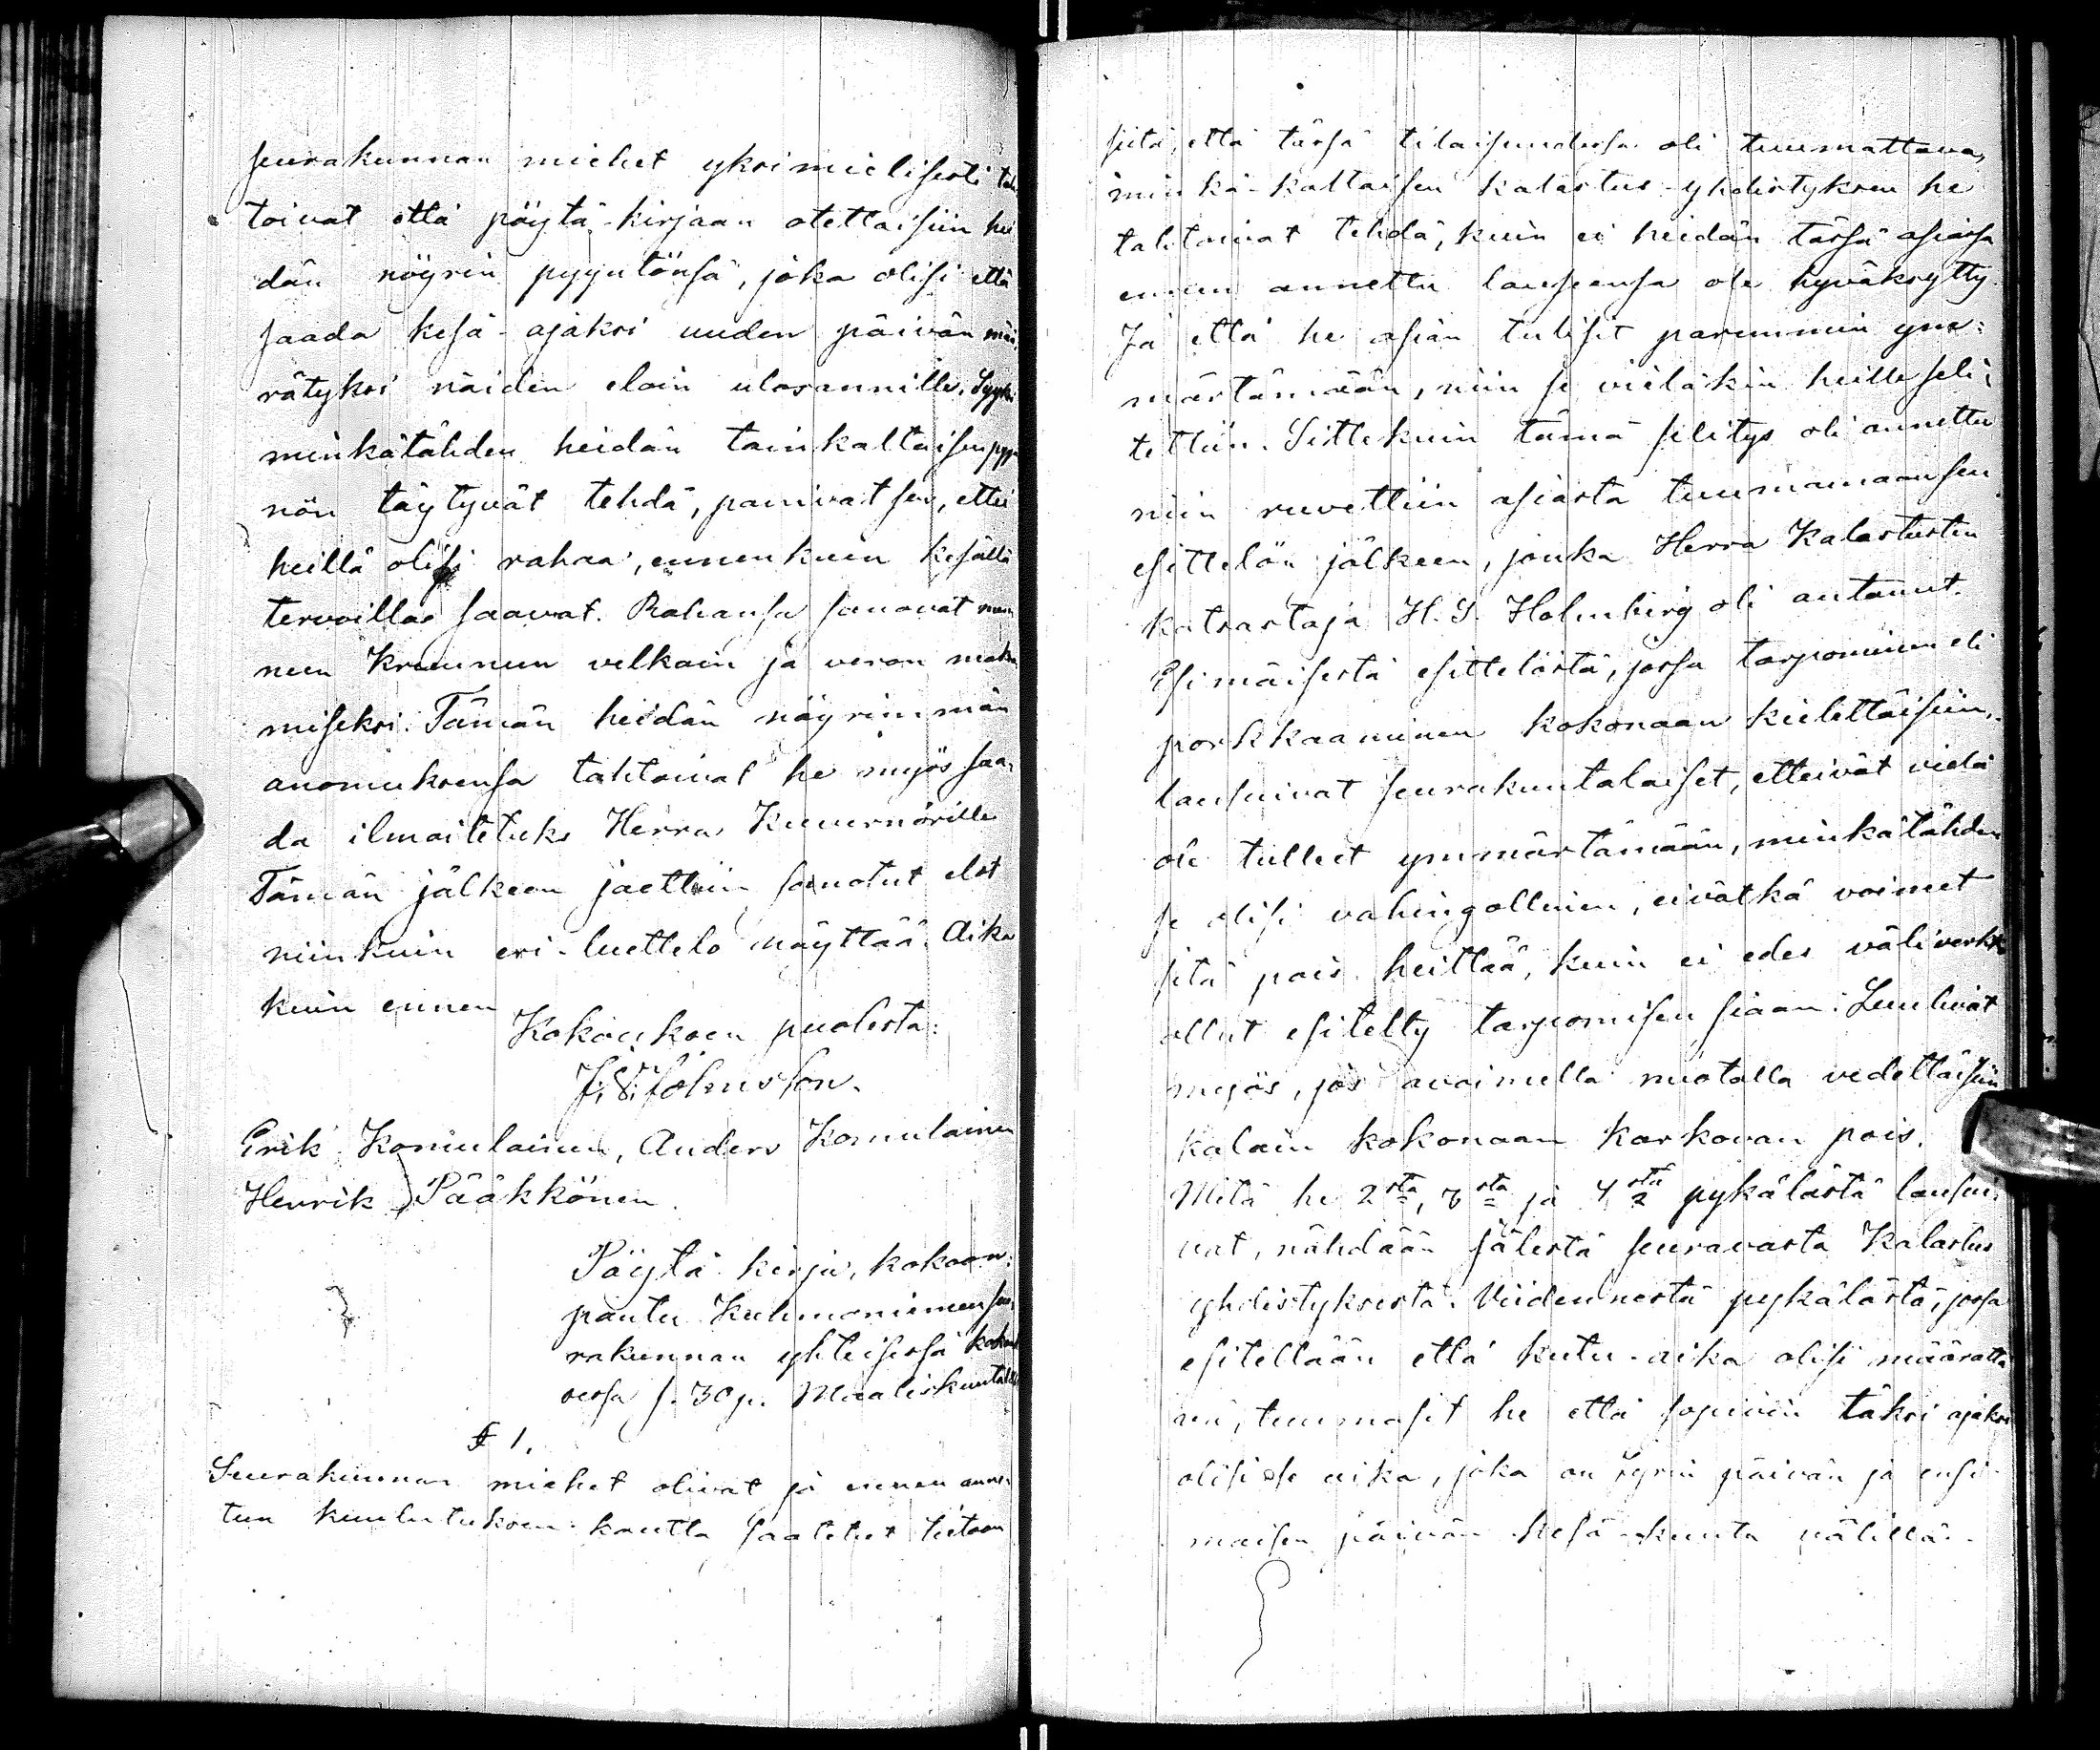 seurakunnan miehet yksimielisesti tah
toivat että pöytä-kirjaan otettaisiin hei
dän nöyrin pyyntönsä, joka olisi että
saada kesä-ajaksi uuden päivän mää
rätyksi näiden eloin ulosannille. Syyksi
minkätähden heidän tainkaltaisen pyy
nön täytyvät tehdä, panivat sen, ettei
heillä olisi rahaa, ennenkuin kesällä
tervoillaan saavat. Rahansa sanovat men
neen Kruunun velkain ja veron maksa
miseksi. Tämän heidän nöyrimmän
anomuksensa tahtoivat he myös saa,
da ilmoitetuksi Herra Kuvernörille
Tämän jälkeen jaettiin sanotut elot
niinkuin eri-luettelo näyttää. Aika
kuin ennen
Kokouksen puolesta:
J. V. Johnsson.
Erik Komulainen, Anders Komulainen
Henrik Pääkkönen.
Pöytä-kirja, kokoon:
pantu Kuhmoniemen seu,
rakunnan yhteisessä kokouk
sessa s. 30 p. Maaliskuuta
§ 1.
Seurakunnan miehet olivat jo ennen annet
tun kuulutuksen kautta saatetut tietoon
siitä, että tässä tilaisuudessa oli tuumattava,
minkä-kaltaisen kalastus-yhdistyksen he
tahtoivat tehdä, kuin ei heidän tässä asiassa
ennen annettu lauseensa ole hyväksytty.
Ja että he asian tulisit paremmin ym:
märtämään, niin se vieläkin heille seli,
tettiin. Sittekuin tämä selitys oli annettu
niin ruvettiin asiasta tuumamaan sen
esittelön jälkeen, jonka Herra Kalastusten
katsastaja H. J. Holmberg oli antanut.
Esimäisestä esittelöstä, jossa tarpominen eli
porkkaaminen kokonaan kielettäisiin,
lausuivat seurakuntalaiset, etteivät vielä
ole tulleet ymmärtämään, minkätähden
se olisi vahingollinen, eivätkä voineet
sitä pois heittää, kuin ei edes väliverkko
ollut esitelty tarpomisen siaan. Luulivat
myös, jos avoimella nuotalla vedettäisiin
kalain kokonaan karkovan pois.
Mitä he 2sta, 3sta ja 4stä pykälästä lausu,
vat, nähdään jälestä seuravasta Kalastus
yhdistyksestä. Viidennestä pykälästä, jossa
esitellään että kutu-aika olisi määrättä
vä, tuumasit he että sopivin täksi ajaksi
olisi se aika, joka on Yyrin päivän ja ensi
maisen päivän kesä-kuuta välillä.